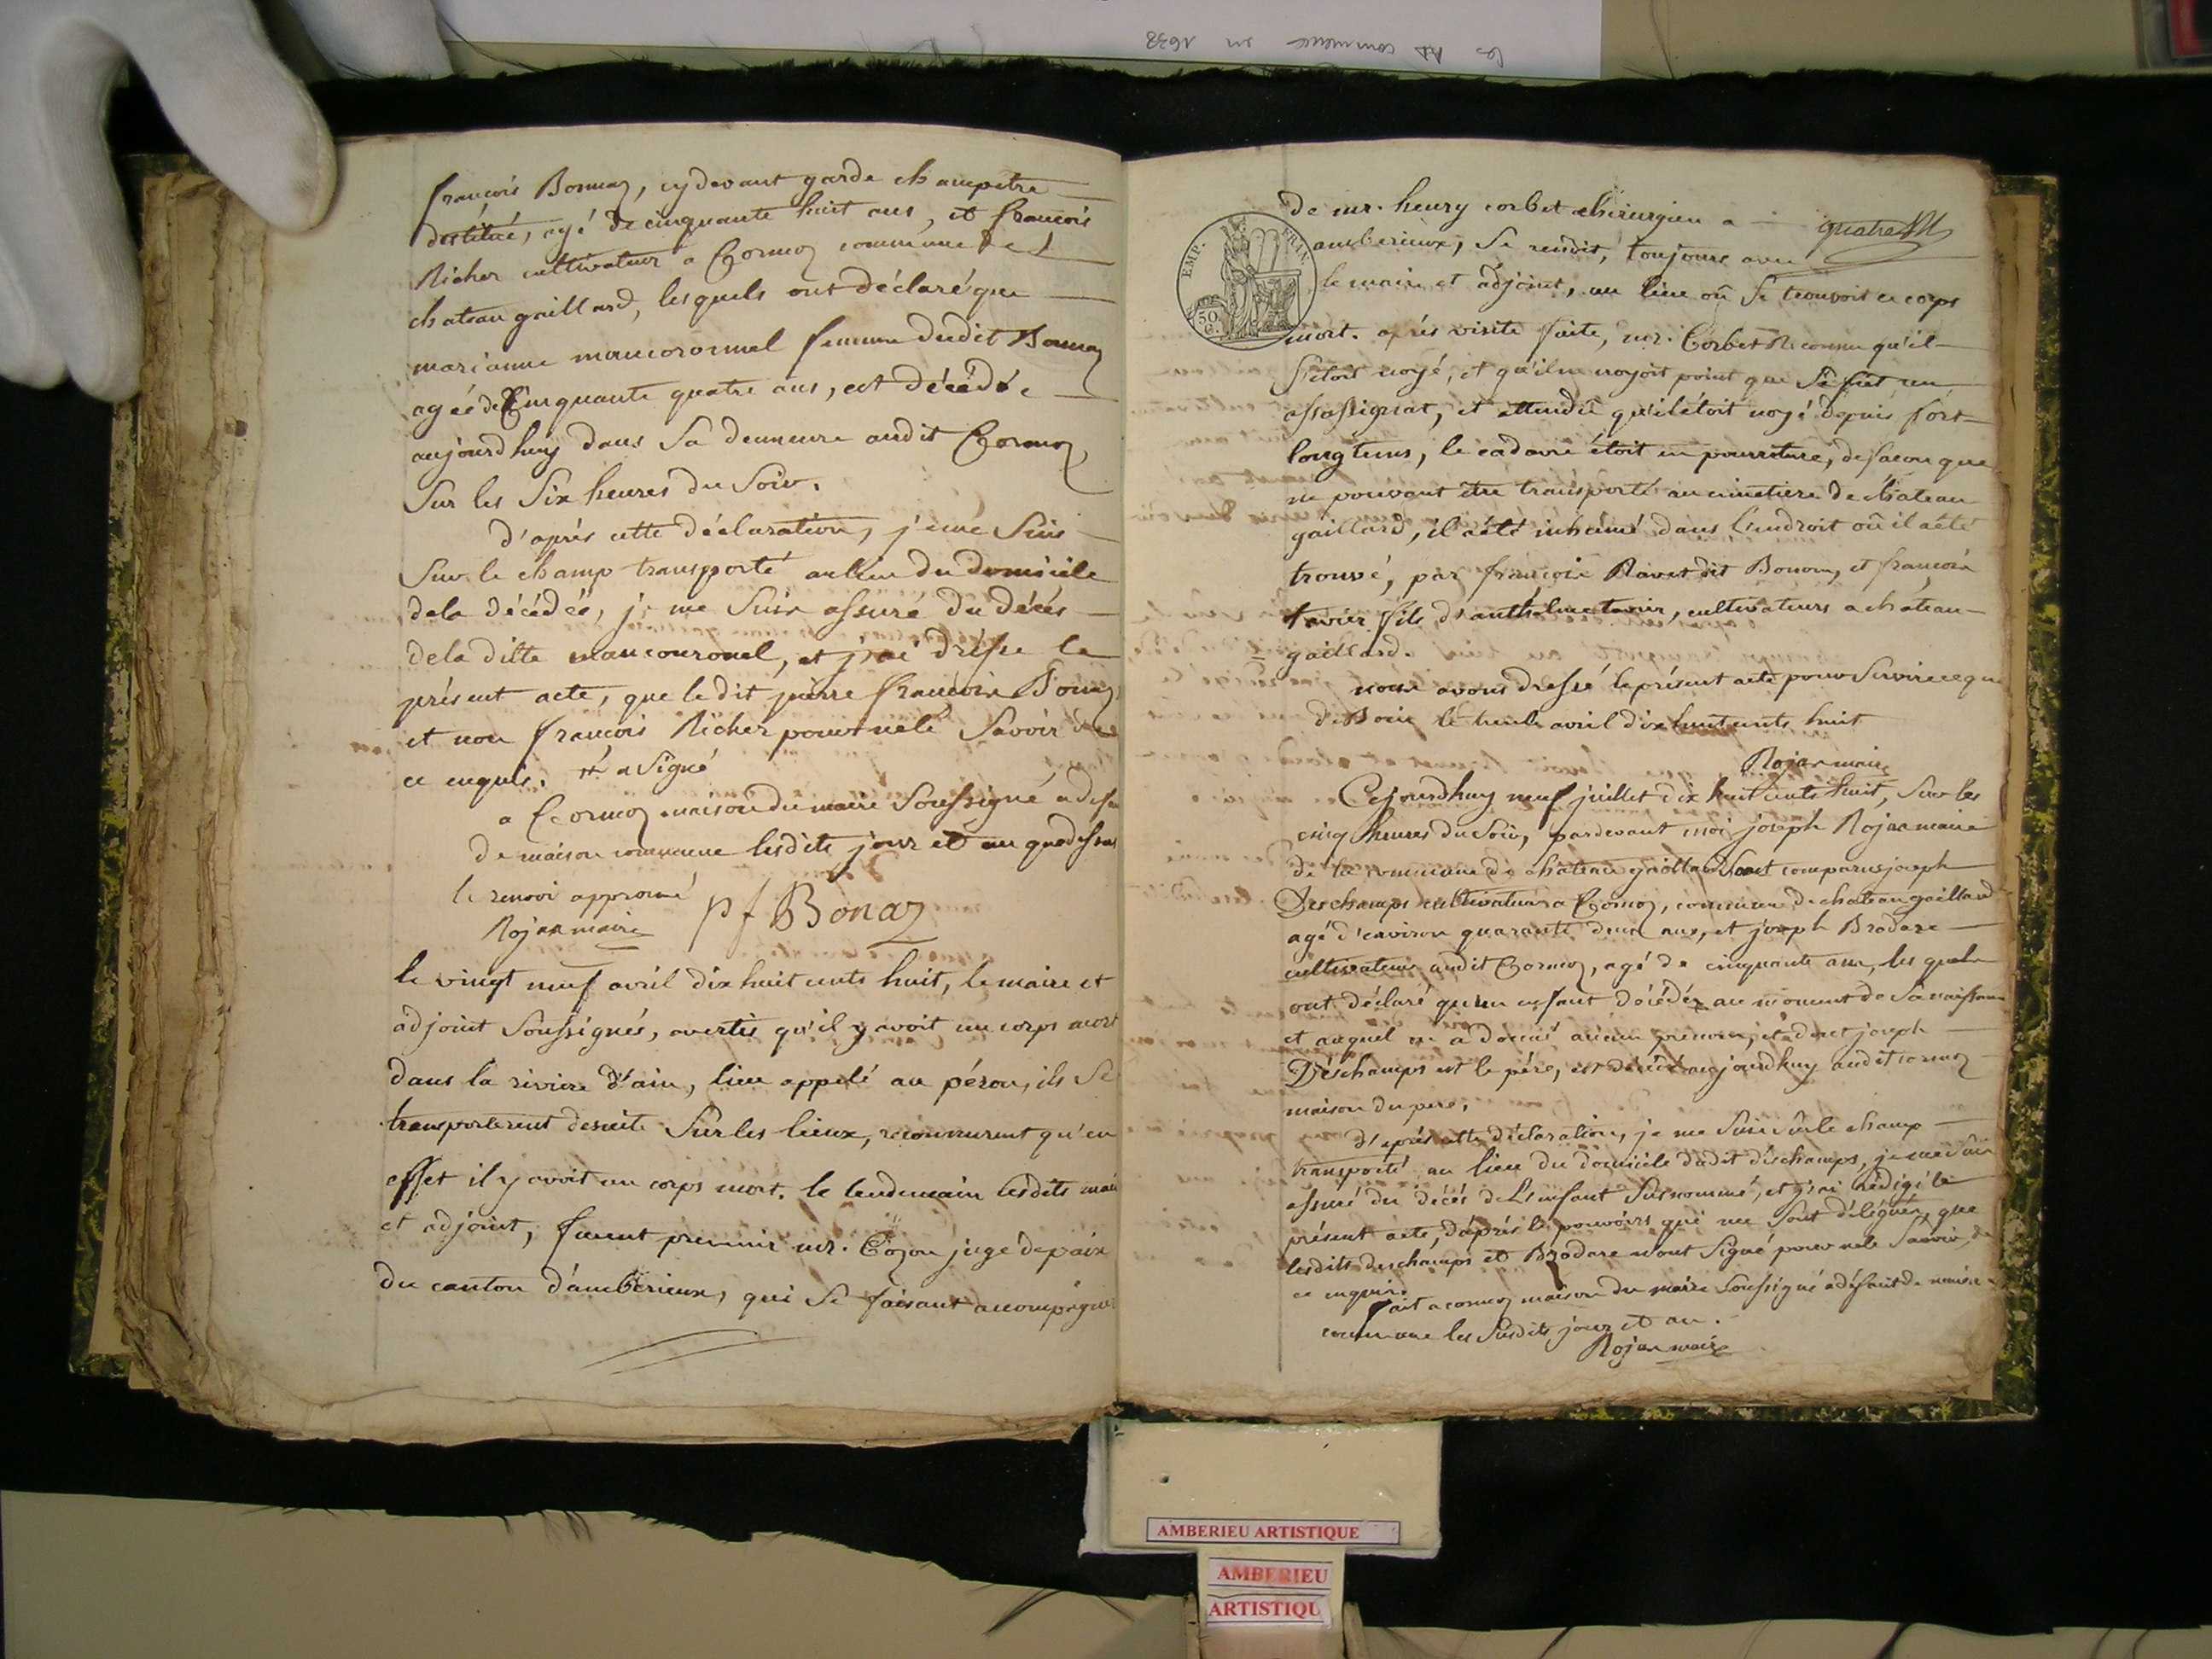 les commence en 1638
françois Bonnaz, cydevant garde champetre
destitué, agé de cinquante huit ans, et françois
Richer cultivateur a Cormoz commune de
chateau gaillard, lesquels ont déclaré que
marianne mancoronnel femme dudit Bonnaz
agée de Cinquante quatre ans, est décédée
aujourdhuy dans Sa demeure audit Cormoz
Sur les Six heures du Soir.
d'aprés cette déclaration, je me Suis
Sur le champ transporté au lieu du domicile
dela décédée, je me Suis assuré du décés
dela ditte mancouronel, et j'ai dréssé le
présent acte, que le dit pierre françois Bonaz
et non françois Richer pour nele Savoir de
ce enquis. # a Signé
a Cormoz maison du maire Soussigné a defau
de maison commune lesdits jour et an quedessus
le renvoi approuvé
Rojan maire
pf Bonaz
le vingt neuf avril dix huit cents huit, le maire et
adjoint Soussignés, avertis qu'il y avoit un corps mort
dans la riviere d'ain, lieu appelé au péron, ils Se
transporterent desuite Sur les lieux, reconnurent qu'en
effet il y avoit un corps mort. le lendemain lesdits mai
et adjoint, furent prevenir mr. Cozon juge depaix
du canton d'amberieux, qui Se faisant accompagner
EMP. FRAN.
50 C.
quatre
de mr. henry corbet chirurgien a
amberieux, Se rendit, toujours avec
le maire et adjoint, au lieu où Se trouvoit ce corps
mort. aprés visite faite, mr. Corbet Reconnu qu'il
S'étoit noyé, et qu'il ne croyoit point que Se fut un
assassignat, et attendû qu'il étoit noyé depuis fort
longtems, le cadavre étoit en pourriture, defacon que
ne pouvant être transporté au cimetiere de chateau
gaillard, il a été inhumé dans L'endroit où il a été
trouvé, par françois Ravet dit Bonom, et françois
tavier fils d'anthelme tavier, cultivateurs a chateau-
gaillard.
nous avons dressé le présent acte pour Servir ce que
de Soin le trente avril dix huit cents huit
Rojan maire
Cejourdhuy neuf juillet dix huit cents huit, Sur les
cinq heures du Soir, pardevant moi joseph Rojan maire
de la commune de chateau gaillard Sont comparus joseph
Deschamps cultivateur a Cormoz, commune de chateau gaillard
agé d'environ quarante deux ans, et joseph Brodare
cultivateur audit Cormoz, agé de cinquante ans, les quels
ont déclaré qu'un enfant décédéz au moment de Sa naissance
et auquel on a donné aucun prenom, et dont joseph
Déschamps est le pére, est décédé aujourdhuy audit cormoz
maison du pere.
d'aprés cette déclaration, je me Suis Sur le champ
transporté au lieu du domicile dudit déschamps, je me Suis
assuré du décés de L'enfant Susnommé, et j'ai rédigé le
présent acte, d'aprés les pouvoirs qui me Sont délégués, que
lesdits deschamps et Brodare n'ont Signé pour nele Savoir, de
ce enquis.
fait a cormoz maison du maire Soussigné a défaut de maison
commune les Susdits jour et an.
Rojan maire
AMBERIEU ARTISTIQUE
AMBERIEU
ARTISTIQU